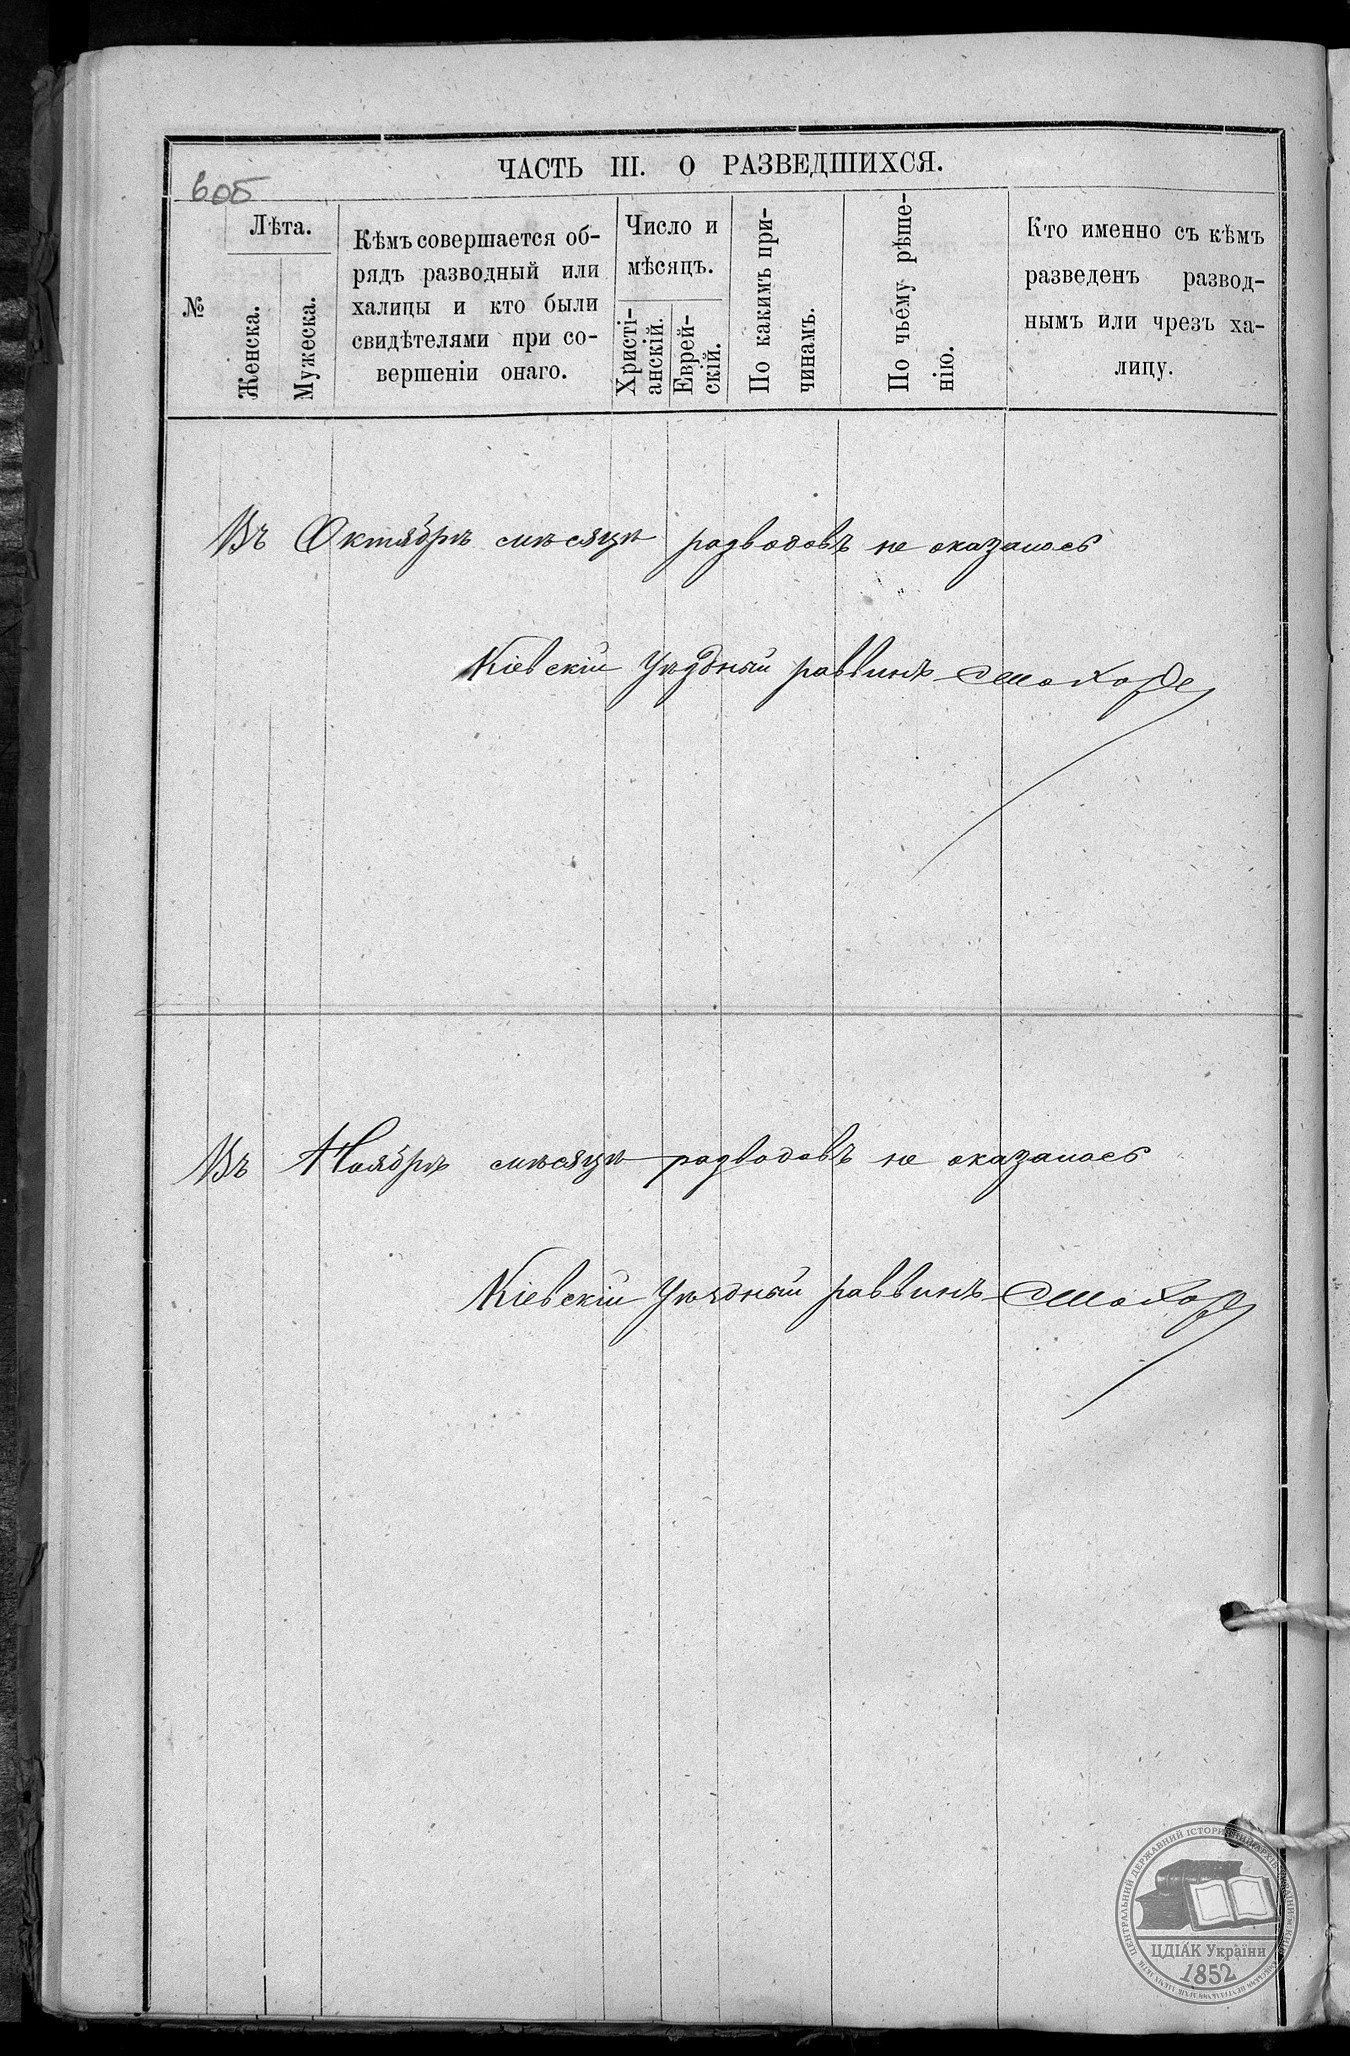 606
ЧАСТЬ III. О РАЗВЕДШИХСЯ.
№
Лѣта.
Женска.
Мужеска.
Кѣмъ совершается об-
рядъ разводный или
халицы и кто были
свидѣтелями при со-
вершеніи онаго.
Число и
мѣсяцъ.
Христі-
анскій.
Еврей-
скій.
По какимъ при-
чинамъ.
По чьему рѣше-
нію.
Кто именно съ кѣмъ
разведенъ развод-
нымъ или чрезъ ха-
лицу.
Въ Октябрѣ мѣсяцѣ разводовъ не оказалось
Кіевскій Уѣздный раввинъ
Въ Ноябрѣ мѣсяцѣ разводовъ не оказалось
Кіевскій Уѣздный раввинъ
ЦЕНТРАЛЬНИЙ ДЕРЖАВНИЙ ІСТОРИЧНИЙ АРХІВ УКРАЇНИ м. КИЇВ
ЦДІАК України
1852